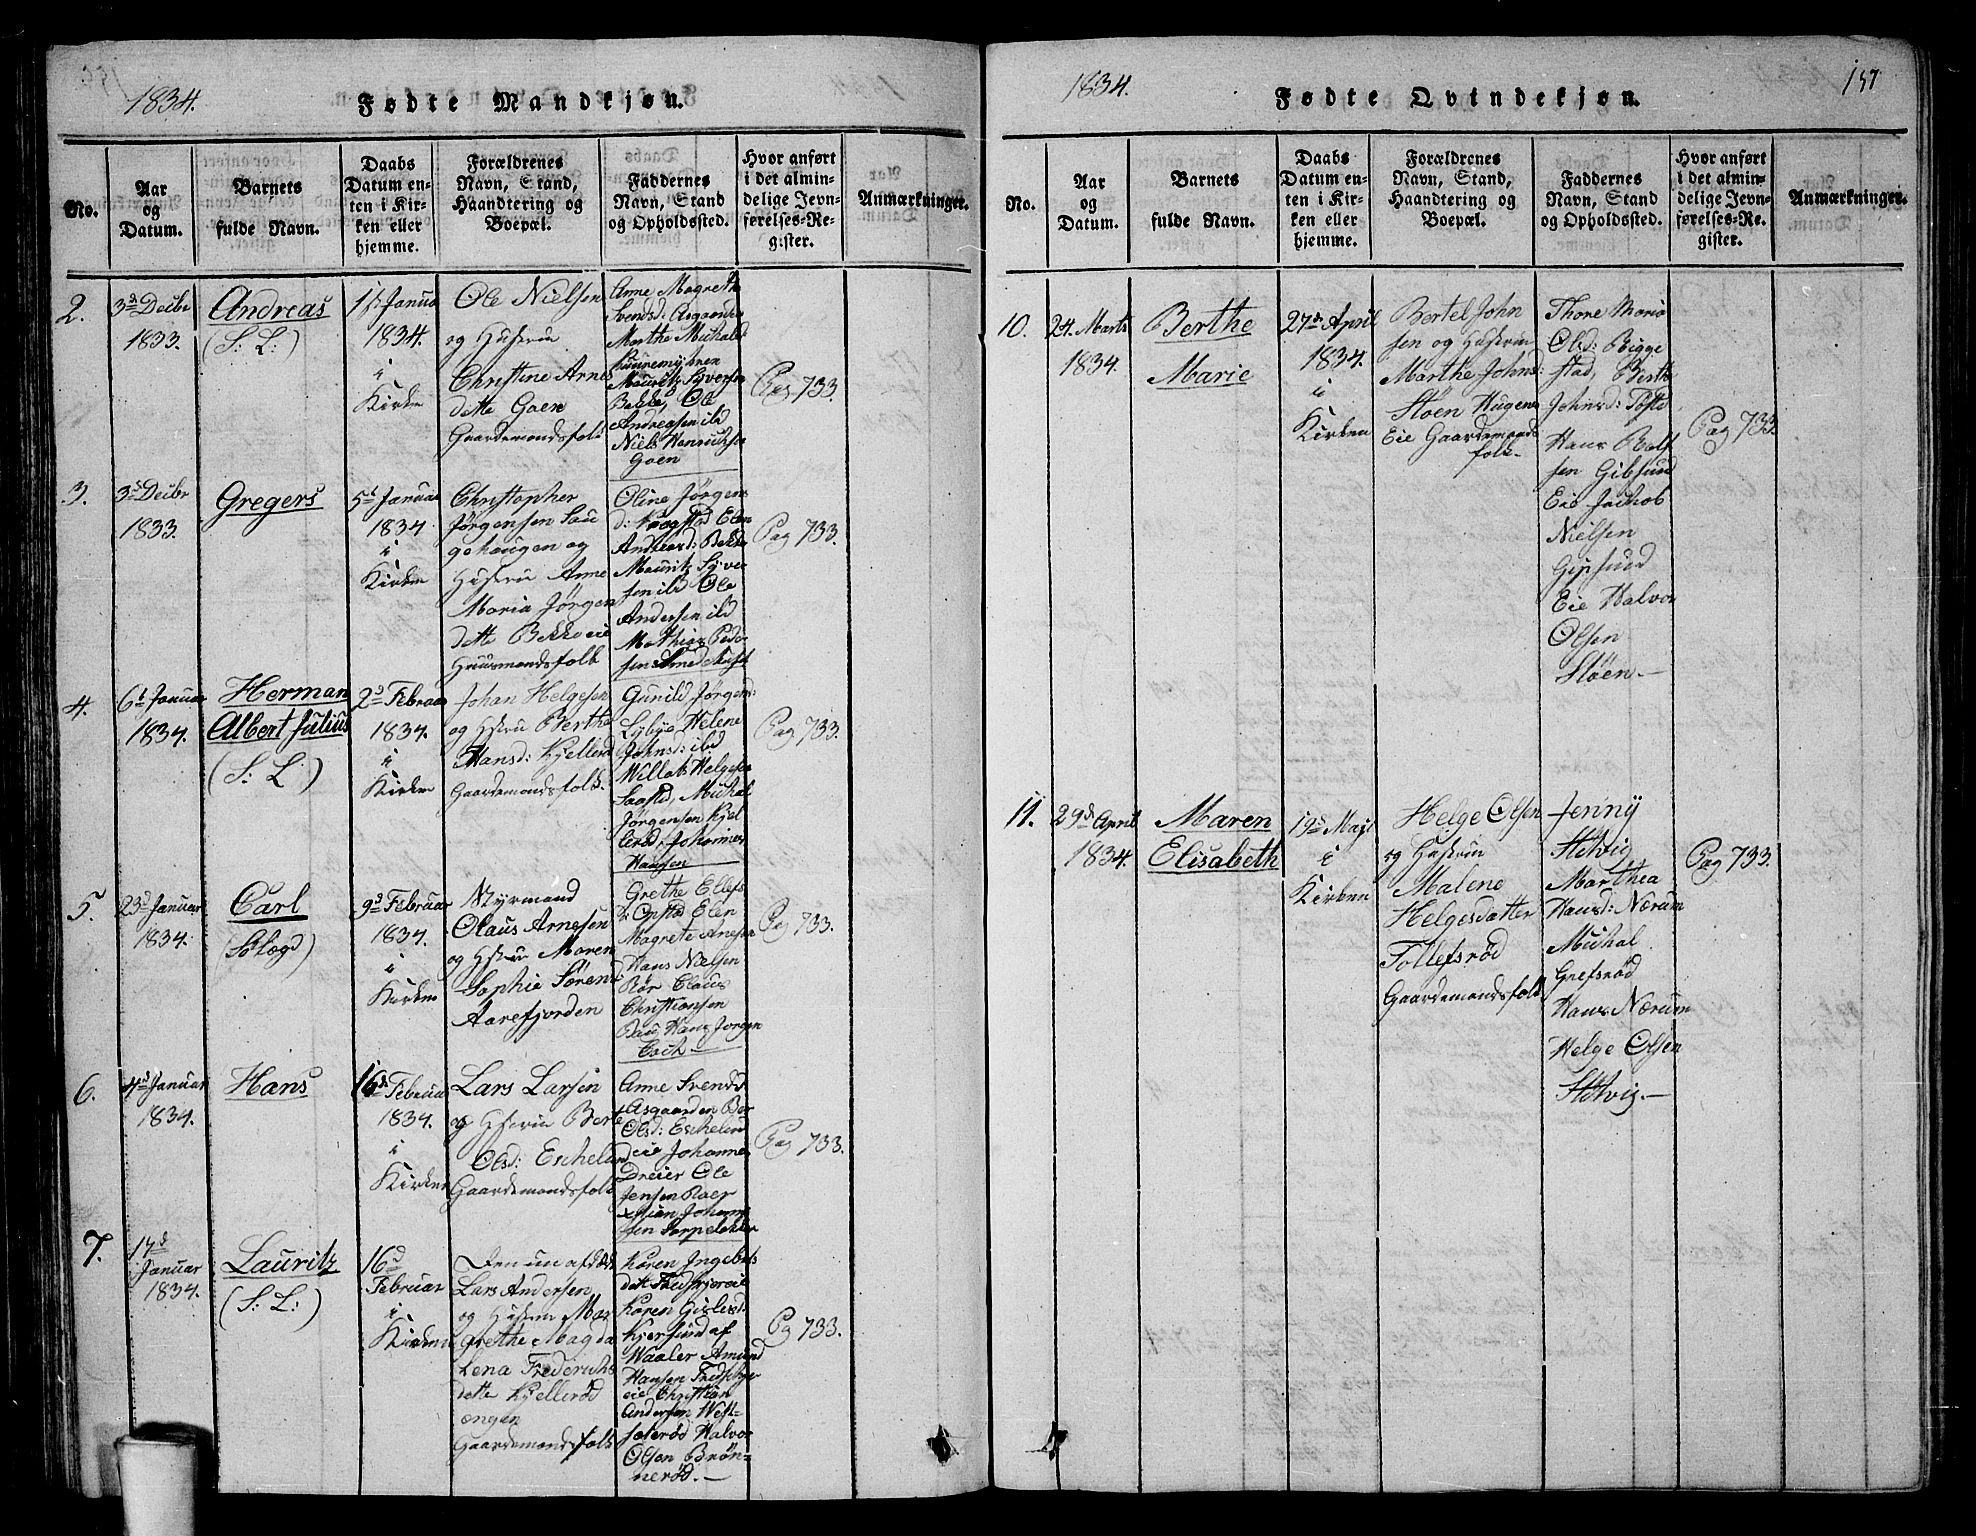 1834.
Fødte Mandkjøn.
No.
Aar
og
Datum.
Barnets
fulde Navn.
Daabs
Datum en-
ten i Kir-
ken eller
hjemme.
Forældrenes
Navn, Stand,
Haandtering og
Boepæl.
Faddernes
Navn, Stand
og Opholdssted.
Hvor anført
i det almin-
delige Jevn-
førelses-Re-
gister.
Anmærkninger.
2.
3d Decbr
1833.
Andreas
(S: L:)
Januar
1834.
i
Kirken
Ole Nielsen
og Hustru
Christine Arnes
datte Gaen
Gaardemandsfolk
Anne Magrethe
Svendsd: Aasgaarden
Marthe Michalsd
Mauritz Syversen
Bekke, Ole
Andreasen ibd
Niels Henrichsen
Gaen
Pag 733.
3.
3d Decbr
1833.
Gregers
5t Januar
1834
i
Kirken
Christopher
Jørgensen Lau
gehaugen og
Hustru Anne
Maria Jørgen
datte Bekkeeie
Huusmandsfolk
Oline Jørgen
Andreasd: Bekke
Mauritz Syver
sen ibd Ole
Andersen ibd
Mathias Peder
Pag 733.
4.
6t Januar
1834.
Herman
Albert Julius
(S: L:)
2d Februar
1834.
i
Kirken
Johan Helgesen
og Hstru Berthe
Hansd: Kjellerød
Gaardemandsfolk.
Gunild Jørgensd:
Lybye Helene
Johnsd: ibd
Willats Helgesen
Saasted, Michal
Jørgensen Kjel
lerød, Johannes
Hansen
Pag 733.
5.
23d Januar
1834.
Carl
(Slagd)
9d Februar
1834.
i
Kirken
Styrmand
Olaus Arnesen
og Hstru Maren
Sophie Sørensd
Aarefjorden
Grethe Ellefs
Opstad Elen
Magrete Anesen
Hans Nielsen
Rør Claus
Christiansen
Hans Jørgen
Coch
Pag 733.
6.
4d Januar
1834.
Hans
16d. Februar
1834.
i
Kirken
Lars Larsen
og Hstru Berte
Olsd: Eschelund
Gaardemandsfolk
Anne Svendsd
Aasgaarden Ber
Olsd: Eschelund
eie Johannes
Dreier Ole
Jensen Roer
Johann
sen Sorpelokken
Pag 733.
7.
17d
Januar
1834.
Lauritz
(S: L:)
16d
Februar
i
Kirken
Den nu afdøde
Lars Andersen
og Hustru Mar
grethe Magda
lena Frederichs
datte Kjellerød
engen
Gaardemandsfolk
Karen Ingebrets
datte
Karen Gislesd.
Kjersund af
Waaler Amund
Hansen
eie Christian
Andersen West-
Halvor
Olsen Brøn-
nerød.—
Pg 733.
1834.
Fødte Qvindekjøn.
157
No.
Aar
og
Datum.
Barnets
fulde Navn.
Daabs
Datum en-
ten i Kir-
ken eller
hjemme.
Forældrenes
Navn, Stand,
Haandtering og
Boepæl.
Faddernes
Navn, Stand
og Opholdssted.
Hvor anført
i det almin-
delige Jevn-
førelses-Re-
gister.
Anmærkninger.
10.
24. Marts
1834.
Berthe
Marie
27d April
1834.
i
Kirken
Bertel John
sen og Hustru
Marthe Johnsd:
Støen Hugenes
Eie Gaardemands
folk.
Thore Maria
Olsd: Rigge
stad, Berthe
Johnsd: Tofte
Hans Rolf
sen Gibsund
Eie Jachob
Nielsen
Gipsund
Eie Halvor
Olsen
Støen.—
Pag 733.
11.
29d April
1834.
Maren
Elisabeth
19d Mayi
i
Kirken
Helge Olsen
og Hustru
Malene
Helgesdatter
Tollefsrød
Gaardemandsfolk
Jenny
Stdvig
Marthea
Hansd: Nærum
Michal
Grefsrød
Hans Nærum
Helge Olsen
Stdvig.—
Pag 733.